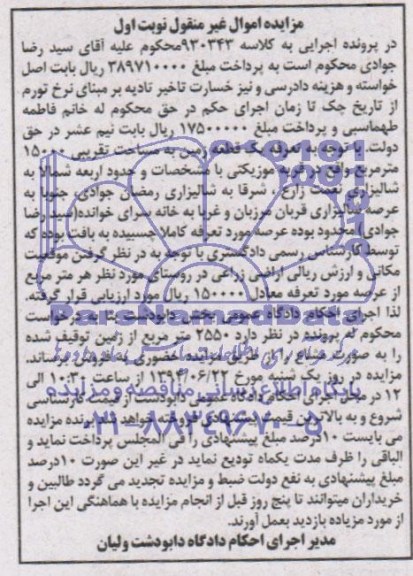 مزایده اموال غیر منقول نوبت اول
در پرونده اجرایی به کلاسه ۹۳۰۳۴۳محکوم علیه آقای سید رضا
جوادی محکوم است به پرداخت مبلغ ۳۸۹۷۱۰۰۰۰ ریال بابت اصل
خواسته و هزینه دادرسی و نیز خسارت تاخیر تادیه بر مبنای نرخ تورم
از تاریخ چک تا زمان اجرای حکم در حق محکوم له خانم فاطمه
طهماسبی و پرداخت مبلغ ۱۷۵۰۰۰۰۰ ریال بابت نیم عشر در حق
دولت. با توجه به تعرفه یک قطعه زمین به مساحت تقریبی ۱۵۰۰۰
مترمربع واقع در قریه موزیکتی با مشخصات و حدود اربعه شمالا به
شالیزاری نعمت زارع ، شرقا به شالیزاری رمضان جوادی، جنوبا به
عرصه شالیزاری قربان مرزبان و غربا به خانه سرای خوانده(سید رضا
جوادی)محدود بوده عرصه مورد تعرفه کاملا چسبیده به بافت بوده که
توسط کارشناس رسمی دادگستری با توجه به در نظر گرفتن موقعیت
مکانی و ارزش ریالی اراضی زراعی در روستای مورد نظر هر متر مربع
از عرصه مورد تعرفه معادل ۱۵۰۰۰۰ ریال مورد ارزیابی قرار گرفته.
لذا اجرای احکام دادگاه عمومی بخش دابودشت درخواست
محکوم له پرونده در نظر دارد ۲۵۵۰ متر مربع از زمین توقیف شده
را به صورت مشاع را از طریق مزایده حضوری به فروش برساند.
مزایده در روز یک شنبه مورخ ۱۳۹۴/۰۶/۲۲ از ساعت ۱۰ الی
۱۲ در محل اجرای احکام دادگاه عمومی دابودشت از قیمت کارشناسی
شروع و به بالاترین قیمت پیشنهادی فروخته خواهد شد. برنده مزایده
می بایست ۱۰درصد مبلغ پیشنهادی را فی المجلس پرداخت نماید و
الباقی را ظرف مدت یکماه تودیع نماید در غیر این صورت ۱۰درصد
مبلغ پیشنهادی به نفع دولت ضبط و مزایده تجدید می گردد طالبین و
خریداران میتوانند تا پنج روز قبل از انجام مزایده با هماهنگی این اجرا
از مورد مزیاده بازدید بعمل آورند.
مدیر اجرای احکام دادگاه دابودشت ولیان
ParsNamadData
پایگاه اطلاع رسانی مناقصه و مزایده
۰۲۱-۸۸۳۴۹۶۷۰-۵